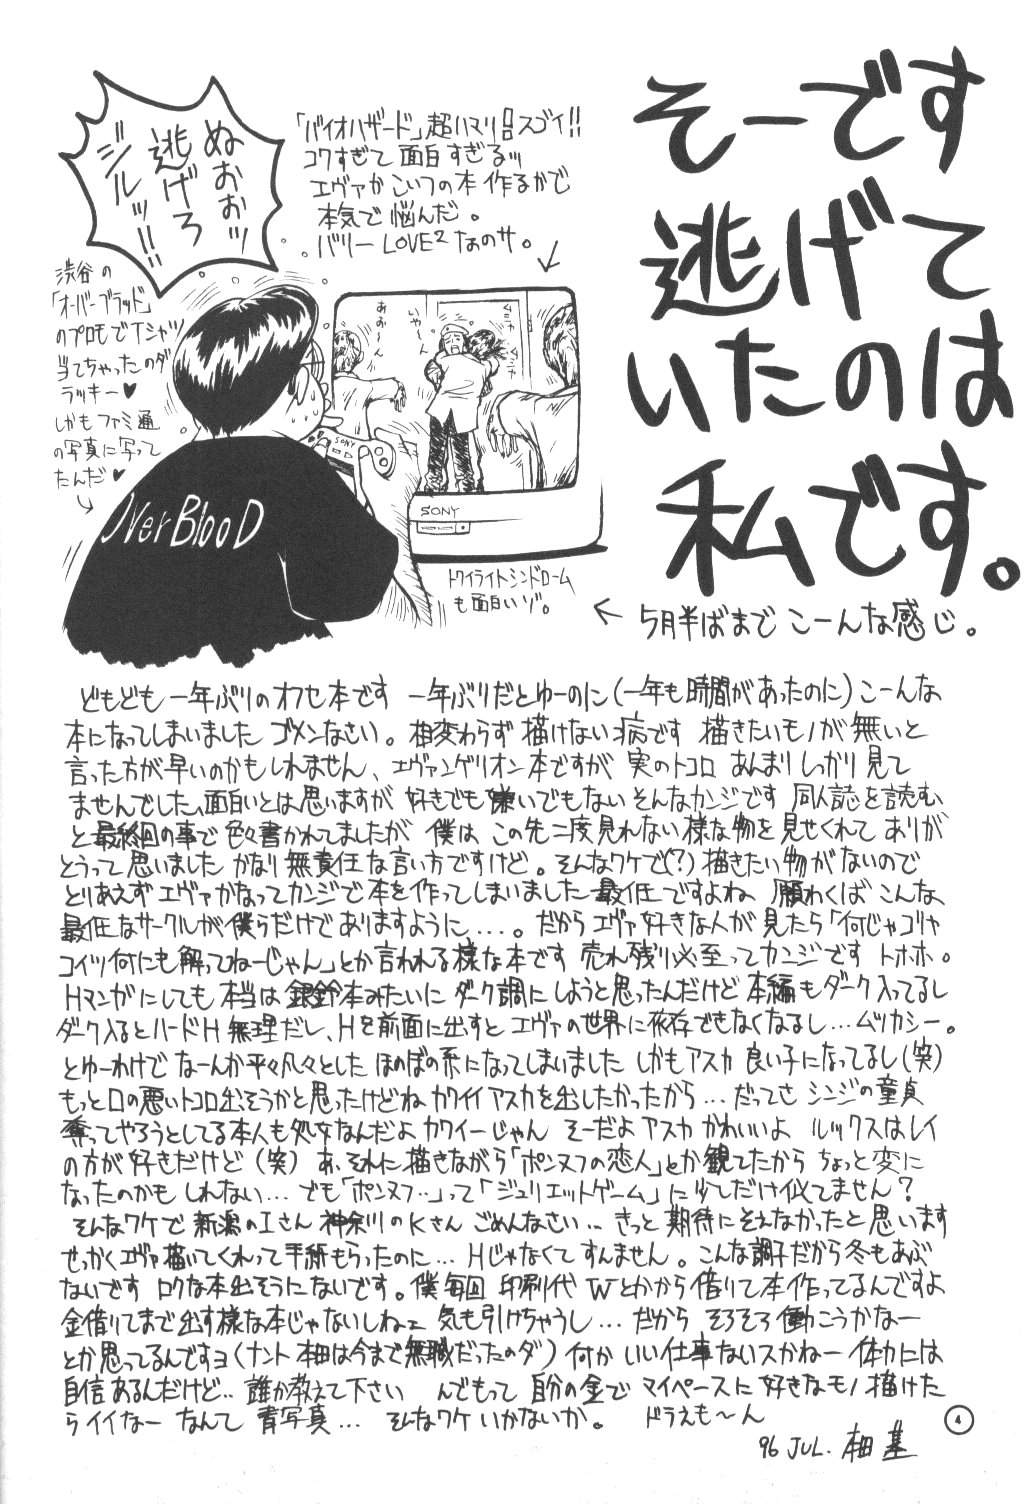 そーです
逃げて
いたのは
私です。
← 5月半ばまで こーんな感じ。
ぬおぉッ
逃げろ
ジルッ!!
「バイオハザード」超ハマリ スゴイ!!
コワすぎて面白すぎるッ
エヴァかこいつの本作るかで
本気で悩んだ。
バリーLOVE2なのサ。
渋谷の
「オーバーブラッド」
のプロモでTシャツ
当てちゃったのダ
ラッキー♥
しかもファミ通
の写真に写って
たんだ♥
いやーん
あおーん
SONY
SONY
OverBlooD
トワイライトシンドローム
も面白いゾ。
どもども 一年ぶりのオフセ本です 一年ぶりだとゆーのに(一年も時間があったのに)こーんな
本になってしまいました ゴメンなさい。相変わらず描けない病です 描きたいモノが無いと
言った方が早いのかもしれません、エヴァンゲリオン本ですが 実のトコロ あんまりしっかり見て
ませんでした、面白いとは思いますが 好きでも嫌いでもないそんなカンジです 同人誌を読む
と最終回の事で色々書かれてましたが 僕は この先二度見れない様な物を見せくれて ありが
とうって思いました かなり無責任な言い方ですけど。そんなワケで(?)描きたい物がないので
とりあえずエヴァかなってカンジで本を作ってしまいました 最低ですよね 願わくば こんな
最低なサークルが僕らだけでありますように...。だからエヴァ好きな人が見たら「何じゃゴリャ
コイツ何にも解ってねーじゃん」とか言われる様な本です 売れ残り必至ってカンジです トホホ。
Hマンガにしても本当は銀鈴本みたいに ダーク調にしようと思ったんだけど本編もダーク入ってるし
ダーク入るとハードH無理だし、Hを前面に出すと エヴァの世界に依存できなくなるし...ムツカシー。
とゆーわけで なーんか平々凡々とした ほのぼの系になってしまいました しかもアスカ 良い子になってるし(笑)
もっと口の悪いトコロ出そうかと思ったけどね カワイイアスカを出したかったから... だってさ シンジの童貞
奪ってやろうとしてる本人も処女なんだよ カワイーじゃん そーだよ アスカ かわいいよ ルックスはレイ
の方が好きだけど(笑) あ、それに描きながら「ポンヌフの恋人」とか観てたから ちょっと変に
なったのかも しれない... でも「ポンヌフ‥」って「ジュリエットゲーム」に少しだけ似てません?
そんなワケで 新潟のIさん 神奈川のKさん ごめんなさい‥ きっと 期待にそえなかったと思います
せっかくエヴァ描いてくれって手紙もらったのに... Hじゃなくてすんません。こんな調子だから冬もあぶ
ないです ロクな本出そうにないです。僕毎回 印刷代 Wとかから借りて本作ってるんですよ
金借りてまで出す様な本じゃないしねェ 気も引けちゃうし... だから そろそろ働こうかなー
とか思ってるんですヨ(ナント 本田は今まで無職だったのダ)何か いい仕事ないスかねー 体力には
自信あるんだけど‥ 誰か教えて下さい んでもって 自分の金で マイペースに好きなモノ描けた
らイイなー なんて 青写真... そんなワケいかないか。 ドラえも〜ん
96 JUL.
4